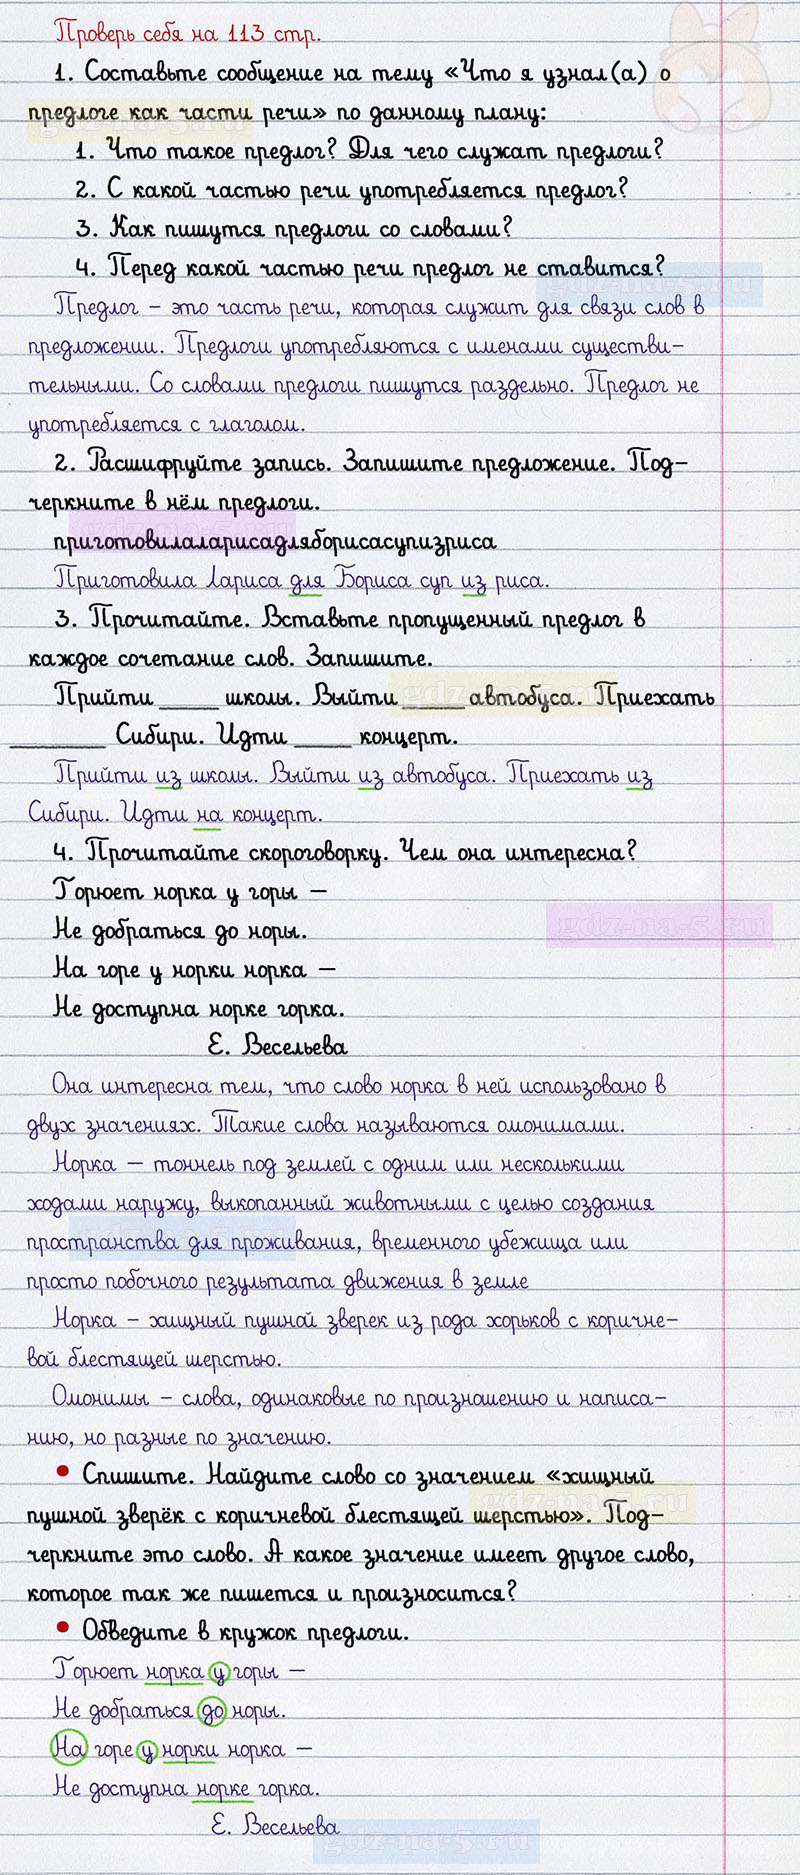 Проверь себя на 113 стр.
1. Составьте сообщение на тему «Что я узнал(а) о
предлоге как части речи» по данному плану:
1. Что такое предлог? Для чего служат предлоги?
2. С какой частью речи употребляется предлог?
3. Как пишутся предлоги со словами?
4. Перед какой частью речи предлог не ставится?
Предлог – это часть речи, которая служит для связи слов в
предложении. Предлоги употребляются с именами существи-
тельными. Со словами предлоги пишутся раздельно. Предлог не
употребляется с глаголом.
2. Расшифруйте запись. Запишите предложение. Под-
черкните в нём предлоги.
приготовилаларисадляборисасупизриса
Приготовила Лариса для Бориса суп из риса.
3. Прочитайте. Вставьте пропущенный предлог в
каждое сочетание слов. Запишите.
Прийти _____ школы. Выйти _____ автобуса. Приехать
________ Сибири. Идти _____ концерт.
Прийти из школы. Выйти из автобуса. Приехать из
Сибири. Идти на концерт.
4. Прочитайте скороговорку. Чем она интересна?
Горюет норка у горы –
Не добраться до норы.
На горе у норки норка –
Не доступна норке горка.
Е. Весельева
Она интересна тем, что слово норка в ней использовано в
двух значениях. Такие слова называются омонимами.
Норка – тоннель под землей с одним или несколькими
ходами наружу, выкопанный животными с целью создания
пространства для проживания, временного убежища или
просто побочного результата движения в земле
Норка – хищный пушной зверек из рода хорьков с коричне-
вой блестящей шерстью.
Омонимы – слова, одинаковые по произношению и написа-
нию, но разные по значению.
• Спишите. Найдите слово со значением «хищный
пушной зверёк с коричневой блестящей шерстью». Под-
черкните это слово. А какое значение имеет другое слово,
которое так же пишется и произносится?
• Обведите в кружок предлоги.
Горюет норка у горы –
Не добраться до норы.
На горе у норки норка –
Не доступна норке горка.
Е. Весельева
gdz-na-5.ru
gdz-na-5.ru
gdz-na-5.ru
gdz-na-5.ru
gdz-na-5.ru
gdz-na-5.ru
gdz-na-5.ru
gdz-na-5.ru